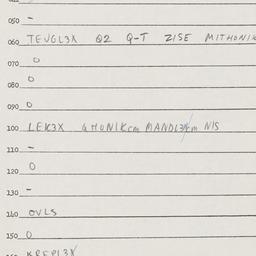 050 –
060 TEVGL3X Q2 Q-T ZISE MITHONIK
070 O
080 O
090 O
100 LEK3X GHONIKcm MANDL3 NIS
110 –
120 O
130 –
140 OVLS
150 O
KREPL3X